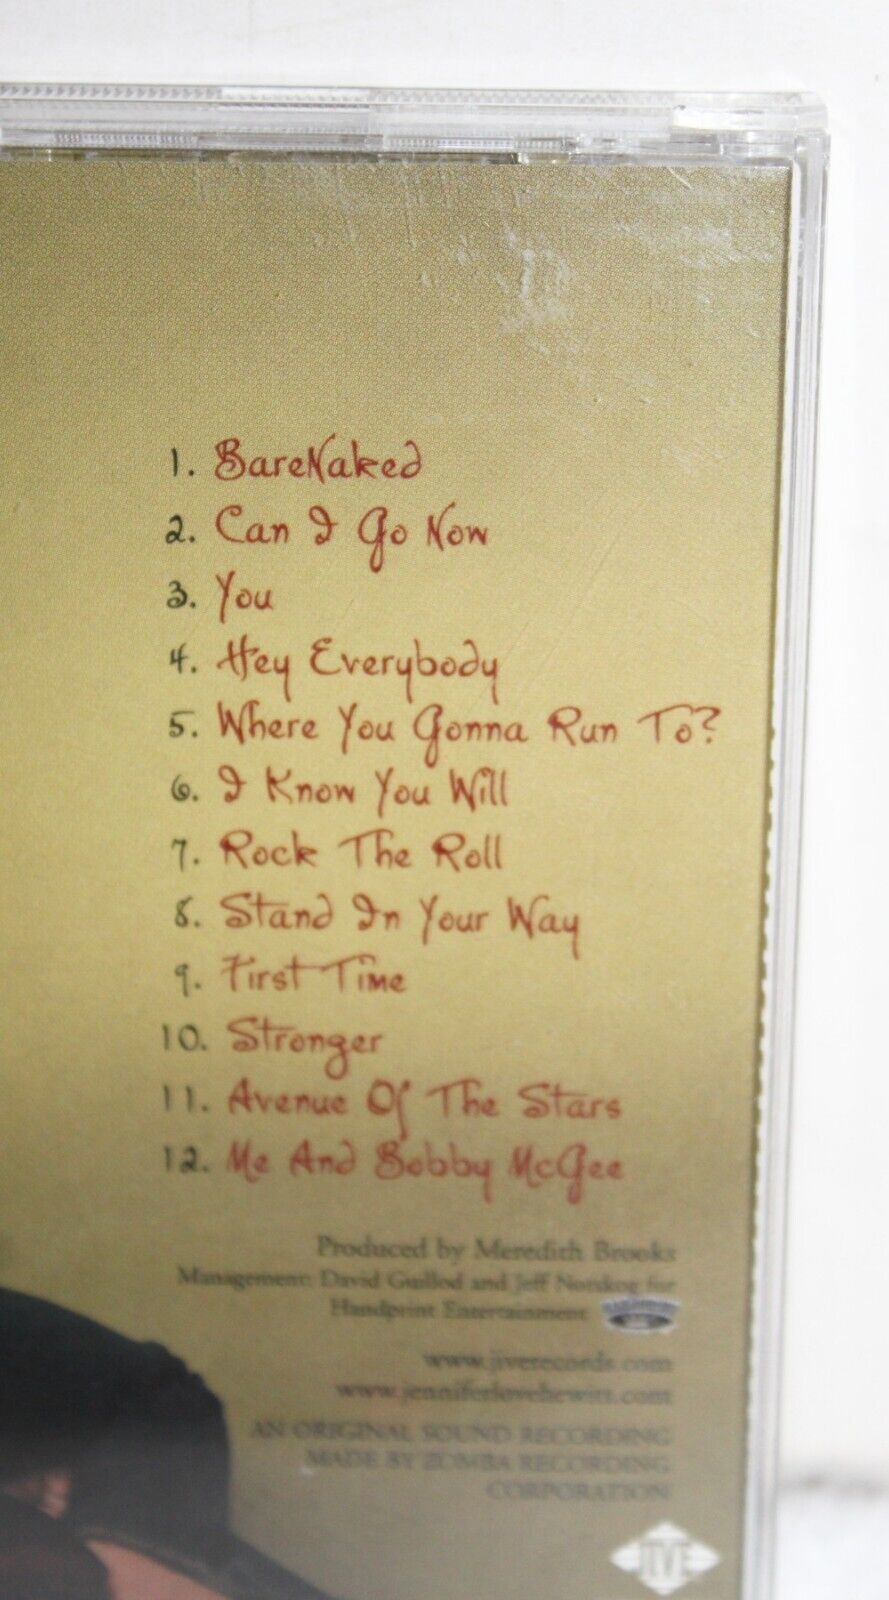 1. BareNaked
2. Can I Go Now
3. You
4. Hey Everybody
5. Where You Gonna Run To?
6. I Know You Will
7. Rock The Roll
8. Stand In Your Way
9. First Time
10. Stronger
11. Avenue Of The Stars
12. Me And Bobby McGee
Produced by Meredith Brooks
Management: David Guillod and Jeff Norskog for
Handprint Entertainment
www.jiverecords.com
www.jenniferlovehewitt.com
AN ORIGINAL SOUND RECORDING
MADE BY ZOMBA RECORDING
CORPORATION
JIVE